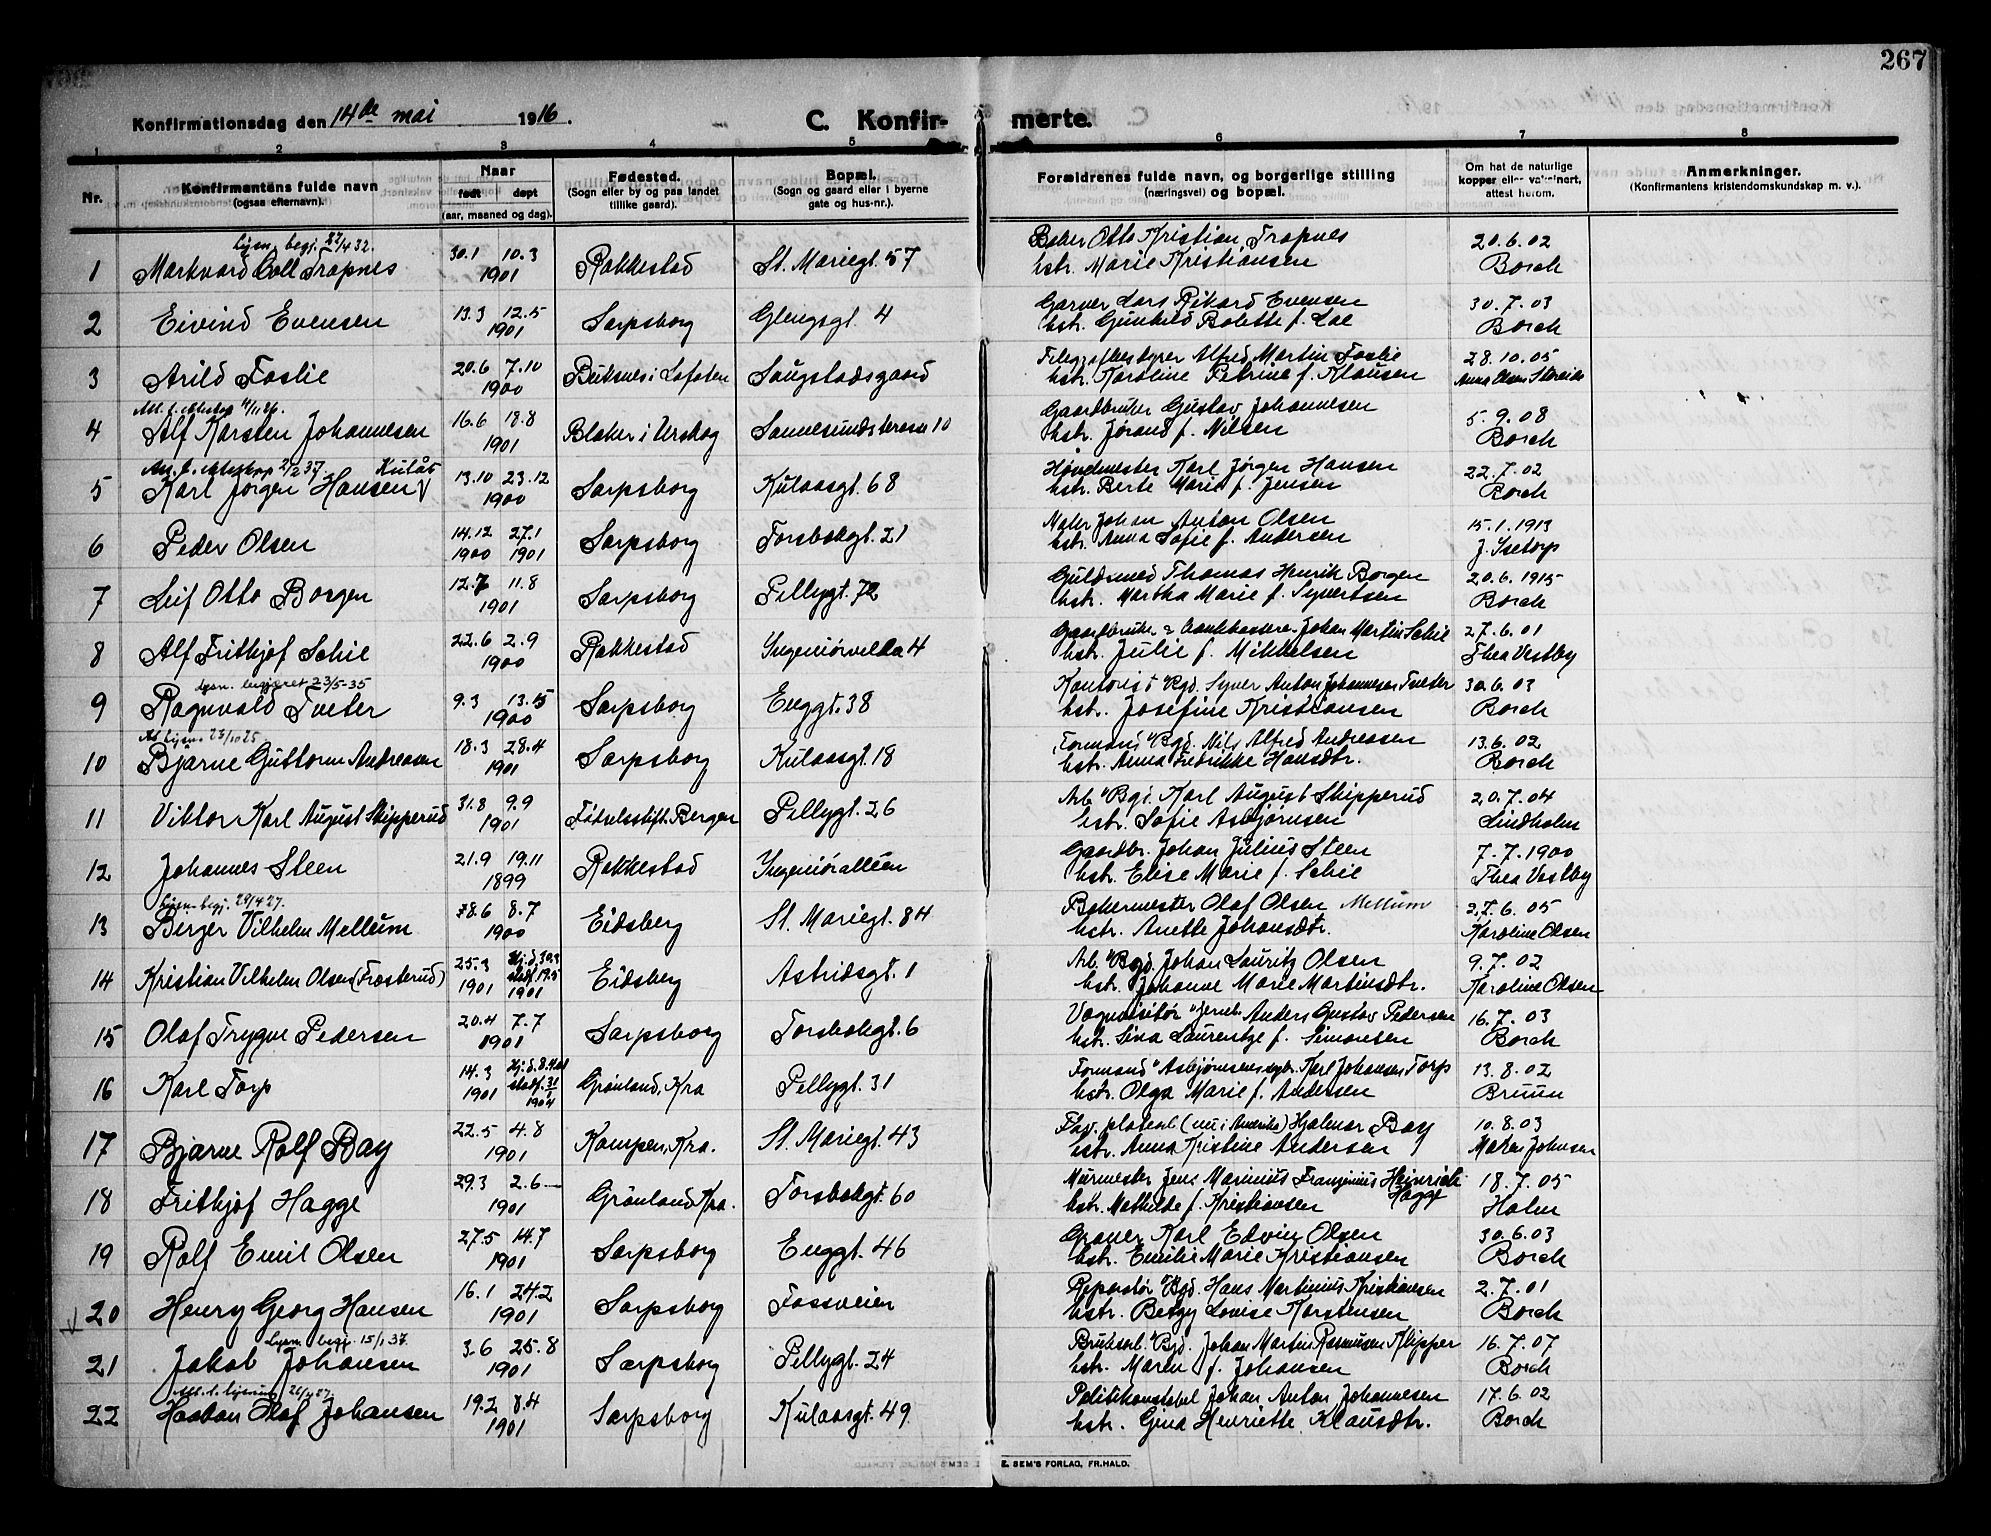 267
Konfirmationsdag den 14de mai 1916.
C. Konfirmerte.
1 2 3 4 5 6 7 8
Nr.
Konfirmantens fulde navn
(ogsaa efternavn).
Naar
født døpt
(aar, maaned og dag).
Fødested.
(Sogn eller by og paa landet
tillike gaard).
Bopæl.
(Sogn og gaard eller i byerne
gate og hus-nr.).
Forældrenes fulde navn, og borgerlige stilling
(næringsvei) og bopæl.
Om hat de naturlige
kopper eller vaksinert,
attest herom.
Anmerkninger.
(Konfirmantens kristendomskundskap m. v.).
lysn. begj. 27/4 32.
1 Markvard Coll Trapnes 30.1 10.3 1901 Rakkestad St. Mariegt. 57
Baker Otto Kristian Trapnes 20.6.02
hstr. Marie Kristiansen Borch
2 Eivind Evensen 13.3 12.5 1901 Sarpsborg Glengsgt. 4
Garver Lars Rikard Evensen 30.7.03
hstr. Gunhild Bolette f. Loe Borch
3 Arild Foslie 20.6 7.10 1900 Buksnes i Lofoten Saugstadsgaard
Alfred Martin Foslie 28.10.05
hstr. Karoline Petrine f. Klausen Anna Olsen
4 Alf Karsten Johannesen 16.6 18.8 1901 Blaker i Urskog Sannesundsveien 10
Gaardbruker Gustav Johannesen 5.9.08
hstr. Jørand f. Nilsen Borch
2/2 37. Kulås
5 Karl Jørgen Hansen 13.10 23.12 1900 Sarpsborg Kulaasgt. 68
Karl Jørgen Hansen 22.7.02
hstr. Berte Marie f. Jensen Borch
6 Peder Olsen 14.12 27.1 1900 1901 Sarpsborg Torsbekgt. 21
Maler Johan Anton Olsen 15.1.1913
hstr. Anna Sofie f. Andersen J. Isetorp
7 Leif Otto Borgen 12.7 11.8 1901 Sarpsborg Pellygt. 72
Guldsmed Thomas Henrik Borgen 20.6.1915
hstr. Martha Marie f. Syvertsen Borch
8 Alf Frithjof Schie 22.6 2.9 1900 Rakkestad Ingeniørveien 4
Gaardbruker & Johan Martin Schie 27.6.01
hstr. Julie f. Mikkelsen Thea Vestby
lysn. begjæret 23/5-35
9 Ragnvald Tveter 9.3 13.15 1900 Sarpsborg Enggt. 38
Kontorist v/Bgd. Syver Anton Johannesen Tveter 30.6.03
hstr. Josefine Kristiansen Borch
lysn. 23/10 25.
10 Bjarne Guttorm Andreasen 18.3 28.4 1901 Sarpsborg Kulaasgt. 18
Formand v/Bgd. Nils Alfred Andreasen 13.6.02
hstr. Anna Fredrikke Hansdtr. Borch
11 Viktor Karl August Skipperud 31.8 9.9 1901 Fødselsstift. Bergen Pellygt. 26
Arb. v/Bgd. Karl August Skipperud 20.7.04
hstr. Sofie Asbjørnsen Lindholm
12 Johannes Steen 21.9 19.11 1899 Rakkestad Ingeniøralleen
Gaardbr. Johan Julius Steen 7.7.1900
hstr. Elise Marie f. Schie Thea Vestby
lysn. begj. 29/4 27.
13 Birger Vilhelm Mellum 28.6 8.7 1900 Eidsberg St. Mariegt. 84
Bakermester Olaf Olsen Mellum 27.6.05
hstr. Anette Johansdtr. Karoline Olsen
14 Kristian Vilhelm Olsen (Frøsterud) 25.3 1901 Hj.d. 30.3 stadf. 19.5 1901 Eidsberg Astridsgt. 1
Arb. v/Bgd. Johan Lauritz Olsen 9.7.02
hstr. Johanne Marie Martinsdtr. Karoline Olsen
15 Olaf Trygve Pedersen 20.4 7.7 1901 Sarpsborg Torsbekgt. 6
Vognvisitør v/Jernb. Anders Gustav Pedersen 16.7.03
hstr. Sina Laurentze f. Simonsen Borch
16 Karl Torp 14.3 1901 Hj.d. 8.4.01 stadf. 31/1 1904 Grønland, Kra Pellygt. 31
Formand v/Asbjørnsens Karl Johansen Torp 13.8.02
hstr. Olga Marie f. Andersen Bruun
17 Bjarne Rolf Bay 22.5 4.8 1901 Kampen, Kra. St. Mariegt. 43
(nu i Amerika) Hjalmar Bay 10.8.03
hstr. Anna Kristine Andersen Maren Johnsen
18 Frithjof Hagge 29.3 2.6 1901 Grønland Kra. Torsbekgt. 60
Murmester Jens Marinius Franzinius Heinrich Hagge 18.7.05
hstr. Mathilde f. Kristiansen Holm
19 Rolf Emil Olsen 27.5 14.7 1901 Sarpsborg Enggt. 46
Graver Karl Edvin Olsen 30.6.03
hstr. Emilie Marie Kristiansen Borch
20 Henry Georg Hansen 16.1 24.2 1901 Sarpsborg Fossveien
Reparatør v/Bgd. Hans Martinius Kristiansen 2.7.01
hstr. Betzy Lovise Karstensen Borch
Lysn. begj. 15/1 37.
21 Jakob Johansen 3.6 25.8 1901 Sarpsborg Pellygt. 24
Bruksarb. v/Bgd. Johan Martin Rasmussen Klipper 16.7.07
hstr. Maren f. Johansen Borch
22 Haakon Olaf Johansen 19.2 8.4 1901 Sarpsborg Kulaasgt. 49
Politikonstabel Johan Anton Johannesen 17.6.02
hstr. Gina Henriette Klausdtr. Borch
E. SEM'S FORLAG, FR.HALD.